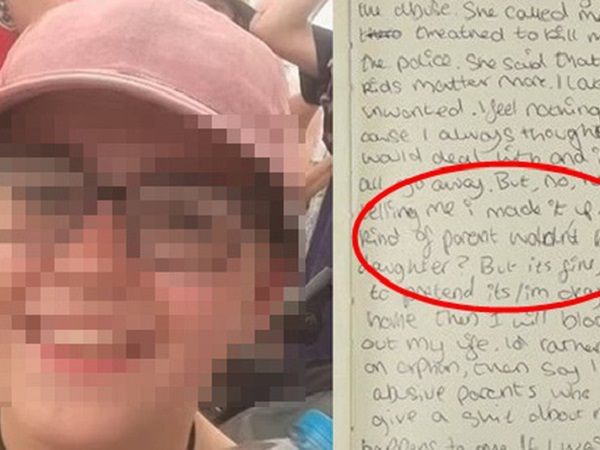 the abuse. She called me
threatned to kill m
the police. She said that
kids matter more. I
unwanted. I feel nothing
cause I always though
would deal with and i
all go away. But, no,
telling me i made it up
kind of parent wouldnt
daughter? But its fine,
to pretend its/im okay
home then I will bloc
out my life. Id rather
an orphan, than say I
abusive parents who
give a shit about
happens to me. If I was